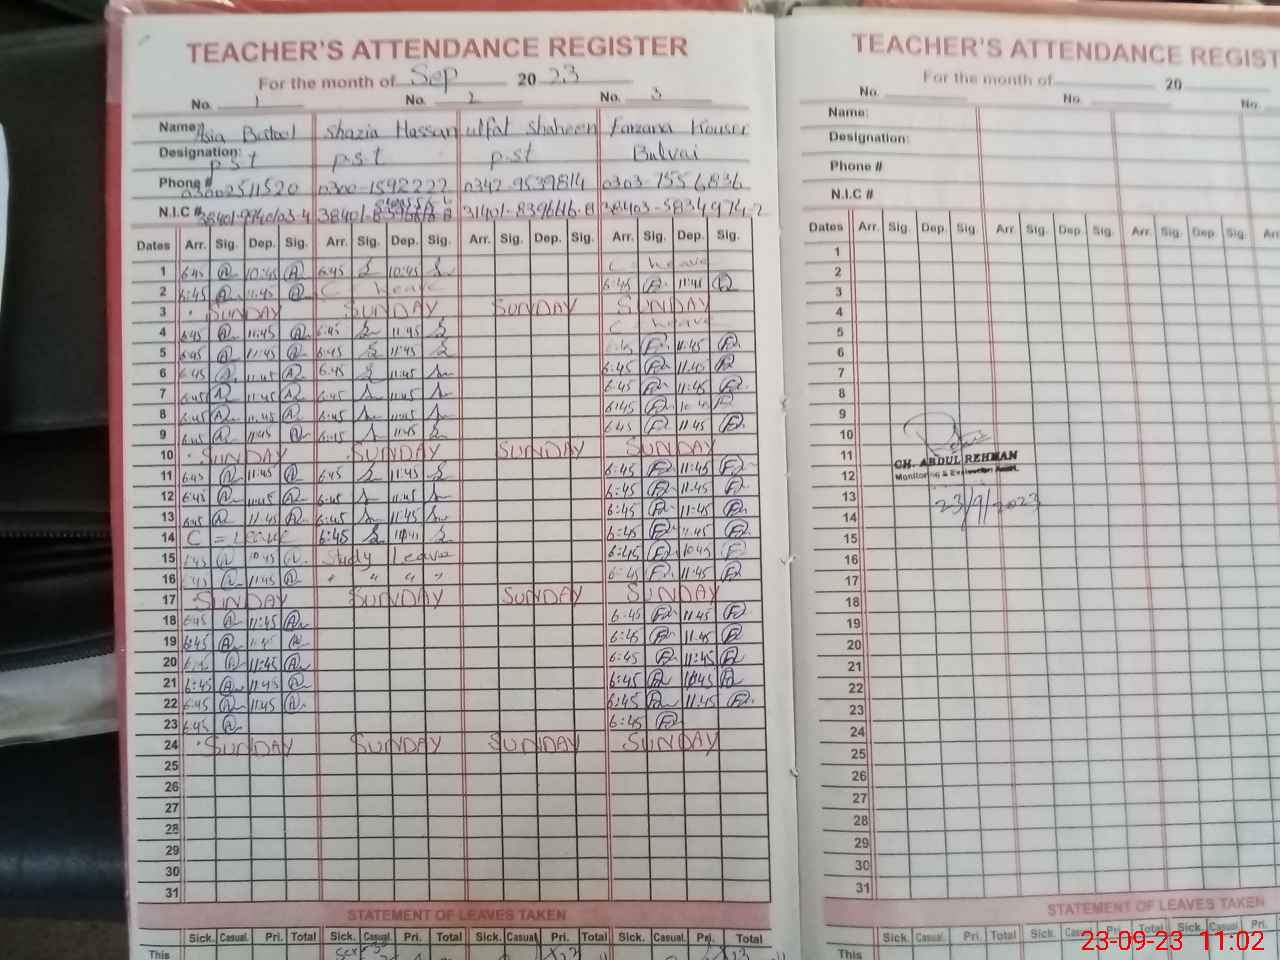 TEACHER'S ATTENDANCE REGISTER
For the month of Sep 20 23
No. 1 No. 2 No. 3
Name: Asia Batool Shazia Hassan ulfat Shaheen Farzana Kouser
Designation: p.s.t p.s.t p.s.t Bulvai
Phone # 03002511520 0300-1592222 0342-9539814 0303-7556836
N.I.C # 31401-839616-8 38403-5834974-2
Dates Arr. Sig. Dep. Sig. Arr. Sig. Dep. Sig. Arr. Sig. Dep. Sig. Arr. Sig. Dep. Sig.
1 6:45 10:45 6:45 10:45 C = leave
2 6:45 11:45 C = leave 6:45 11:45
3 SUNDAY SUNDAY SUNDAY SUNDAY
4 6:45 11:45 6:45 11:45 C = leave
5 6:45 11:45 6:45 11:45 6:45 11:45
6 6:45 11:45 6:45 11:45 6:45 11:45
7 6:45 11:45 6:45 11:45 6:45 11:45
8 6:45 11:45 6:45 11:45 6:45 10:45
9 6:45 11:45 6:45 11:45 6:45 11:45
10 SUNDAY SUNDAY SUNDAY SUNDAY
11 6:45 11:45 6:45 11:45 6:45 11:45
12 6:45 11:45 6:45 11:45 6:45 11:45
13 6:45 11:45 6:45 11:45 6:45 11:45
14 C = Leave 6:45 6:45 11:45
15 6:45 10:45 Study Leave 6:45 10:45
16 6:45 11:45 " " " " 6:45 11:45
17 SUNDAY SUNDAY SUNDAY SUNDAY
18 6:45 11:45 6:45 11:45
19 6:45 11:45 6:45 11:45
20 11:45 6:45 11:45
21 6:45 11:45 6:45
22 6:45 11:45 6:45 11:45
23 6:45 6:45
24 SUNDAY SUNDAY SUNDAY SUNDAY
25
26
27
28
29
30
31
STATEMENT OF LEAVES TAKEN
Sick. Casual. Pri. Total Sick. Casual. Pri. Total Sick. Casual Pri. Total Sick. Casual. Pri. Total
This
TEACHER'S ATTENDANCE REGIST
For the month of 20
No. No. No.
Name:
Designation:
Phone #
N.I.C #
Dates Arr. Sig. Dep. Sig. Arr. Sig. Dep. Sig. Arr. Sig. Dep. Sig. Arr
1
2
3
4
5
6
7
8
9
10
11
12
13
14
15
16
17
18
19
20
21
22
23
24
25
26
27
28
29
30
31
CH. ABDUL REHMAN
Monitoring & Evaluation Asstt.
23/9/2023
STATEMENT OF LEAVES TAKEN
Sick. Casual. Pri. Total Sick. Casual. Pri. Total Sick. Casual
This
23-09-23 11:02